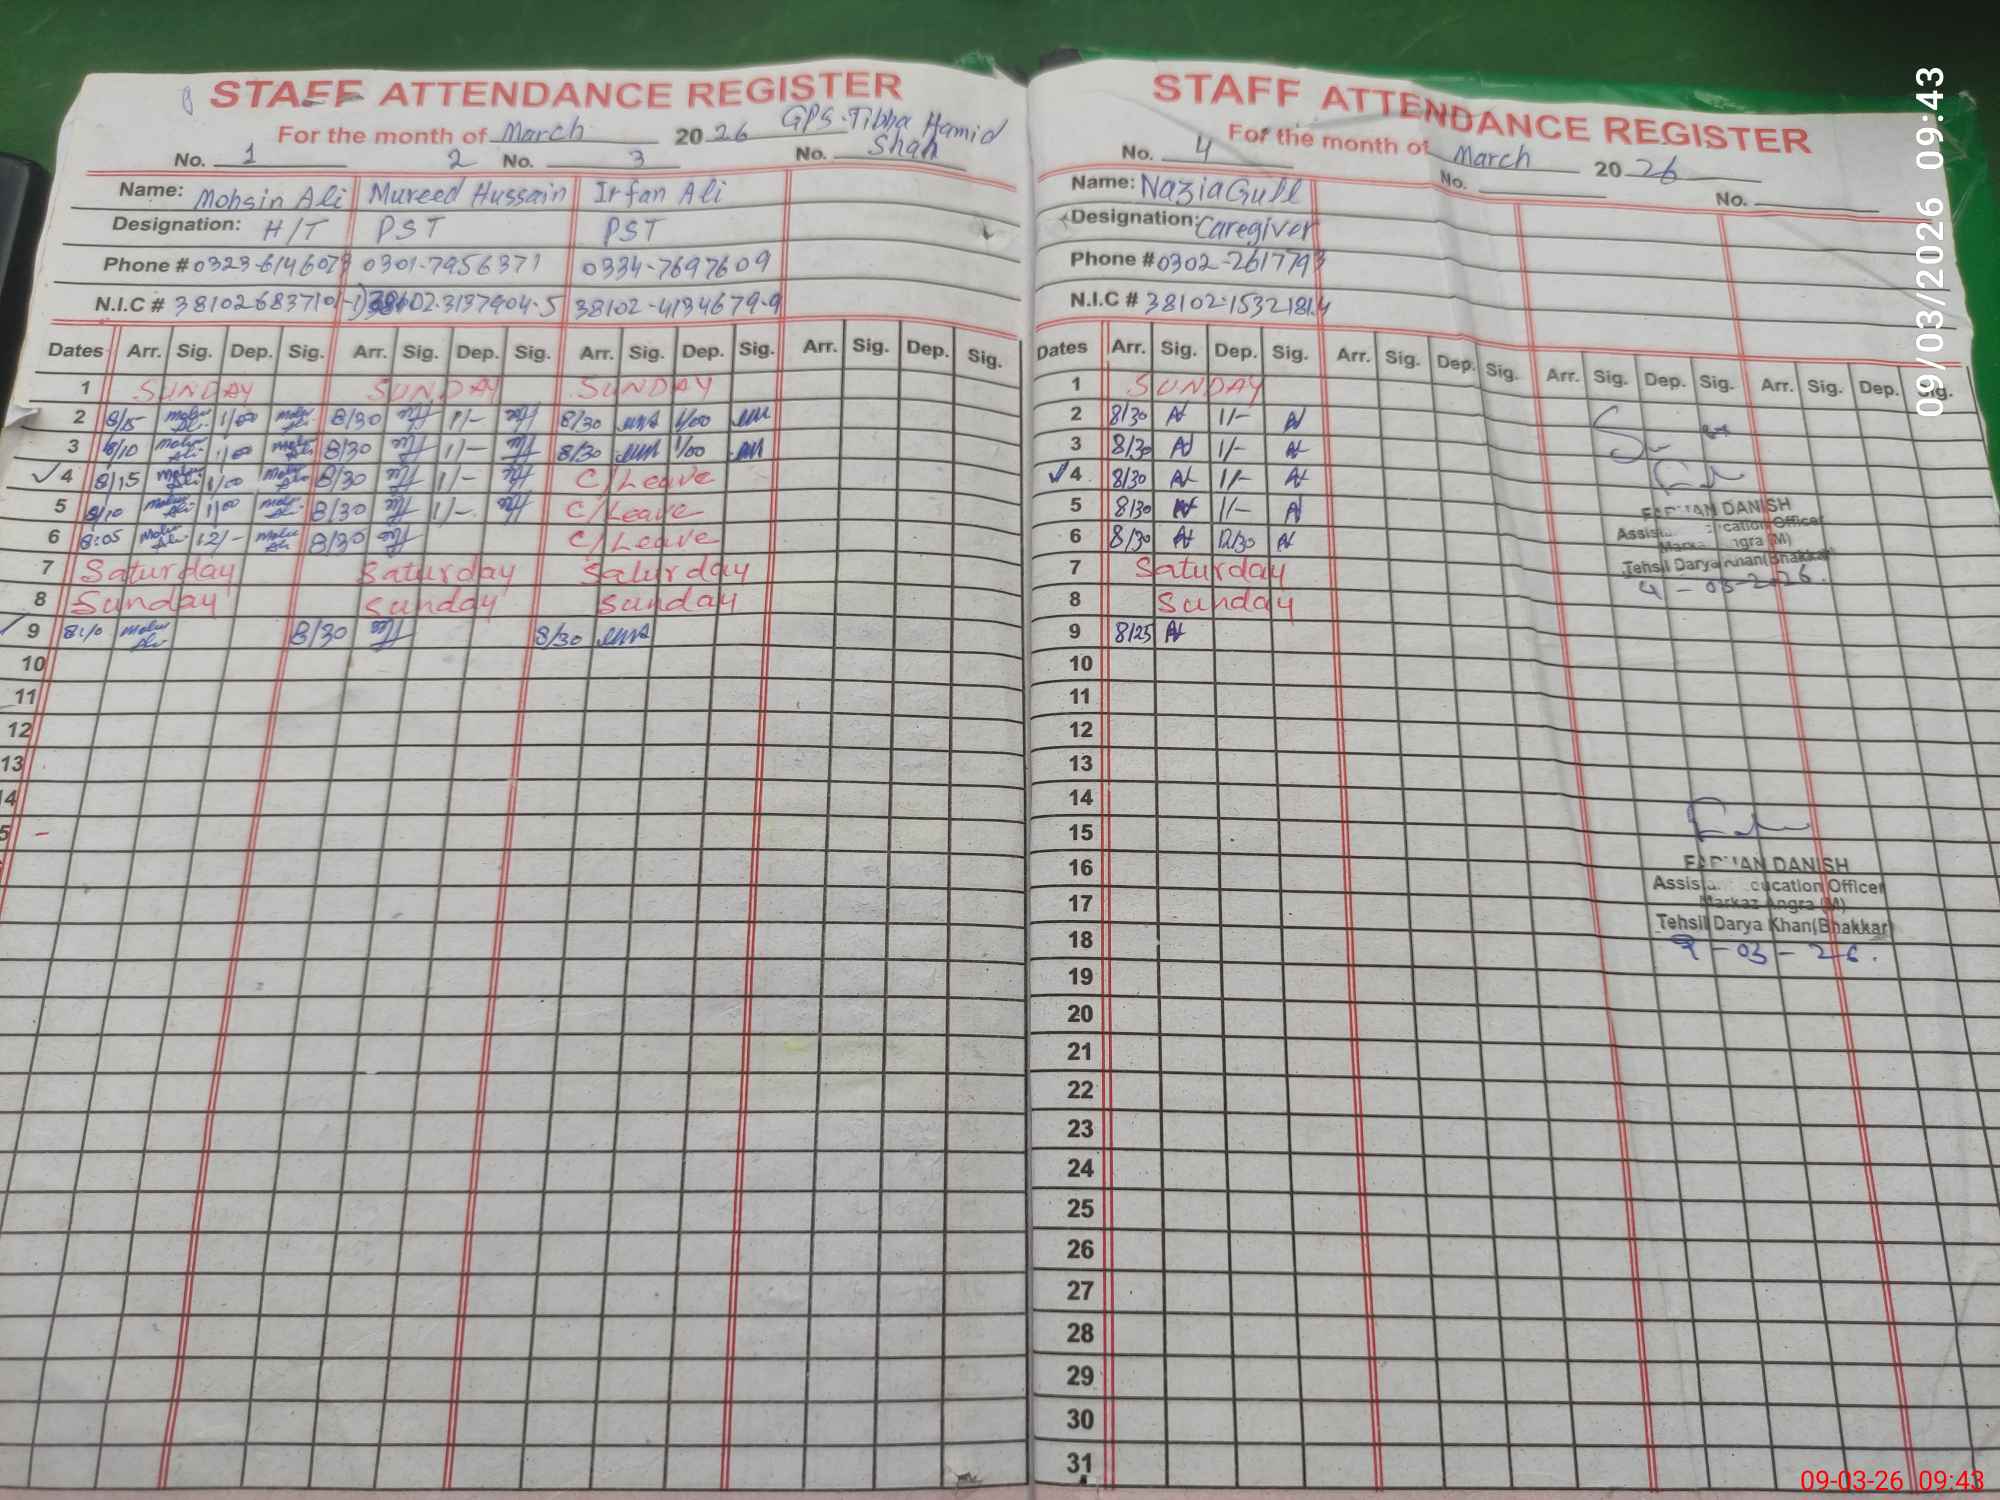 STAFF ATTENDANCE REGISTER
For the month of March 2026 GPS. Tibba Hamid Shah
No. 1 2 No. 3 No.
Name: Mohsin Ali Mureed Hussain Irfan Ali
Designation: H/T PST PST
Phone # 0323-6146073 0301-7956371 0334-7697609
N.I.C # 38102-3137904-5 38102-4134679-9
Dates Arr. Sig. Dep. Sig. Arr. Sig. Dep. Sig. Arr. Sig. Dep. Sig. Arr. Sig. Dep. Sig.
1 SUNDAY SUNDAY SUNDAY
2 8/15 1/00 8/30 1/- 8/30 1/00
3 8/10 1/00 8/30 1/- 8/30 1/00
4 8/15 1/00 8/30 1/- C/Leave
5 8/10 1/00 8/30 1/- C/Leave
6 8:05 12/- 8/30 C/Leave
7 Saturday Saturday Saturday
8 Sunday Sunday Sunday
9 8:10 8/30 8/30
10
11
12
13
14
5
STAFF ATTENDANCE REGISTER
For the month of March 2026
No. 4 No. No.
Name: Nazia Gull
Designation: Caregiver
Phone # 0302-2617793
N.I.C # 38102-1532181.4
Dates Arr. Sig. Dep. Sig. Arr. Sig. Dep. Sig. Arr. Sig. Dep. Sig. Arr. Sig. Dep. Sig.
1 SUNDAY
2 8/30 1/-
3 8/30 1/-
4 8/30 1/-
5 8/30 1/-
6 8/30 12/30
7 Saturday
8 Sunday
9 8/25
10
11
12
13
14
15
16
17
18
19
20
21
22
23
24
25
26
27
28
29
30
31
DANISH
Officer
(M)
Tehsil Darya Khan(Bhakkar)
4-03-2026.
DANISH
Education Officer
Markaz Angra (M)
Tehsil Darya Khan(Bhakkar)
9-03-26.
09/03/2026 09:43
09-03-26 09:43